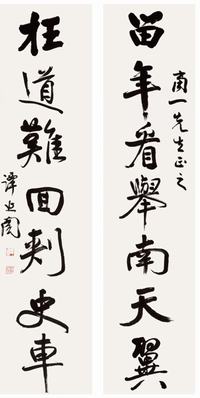 留年看舉南天翼
商一先生正之
枉道難回刺史車
譚延闓